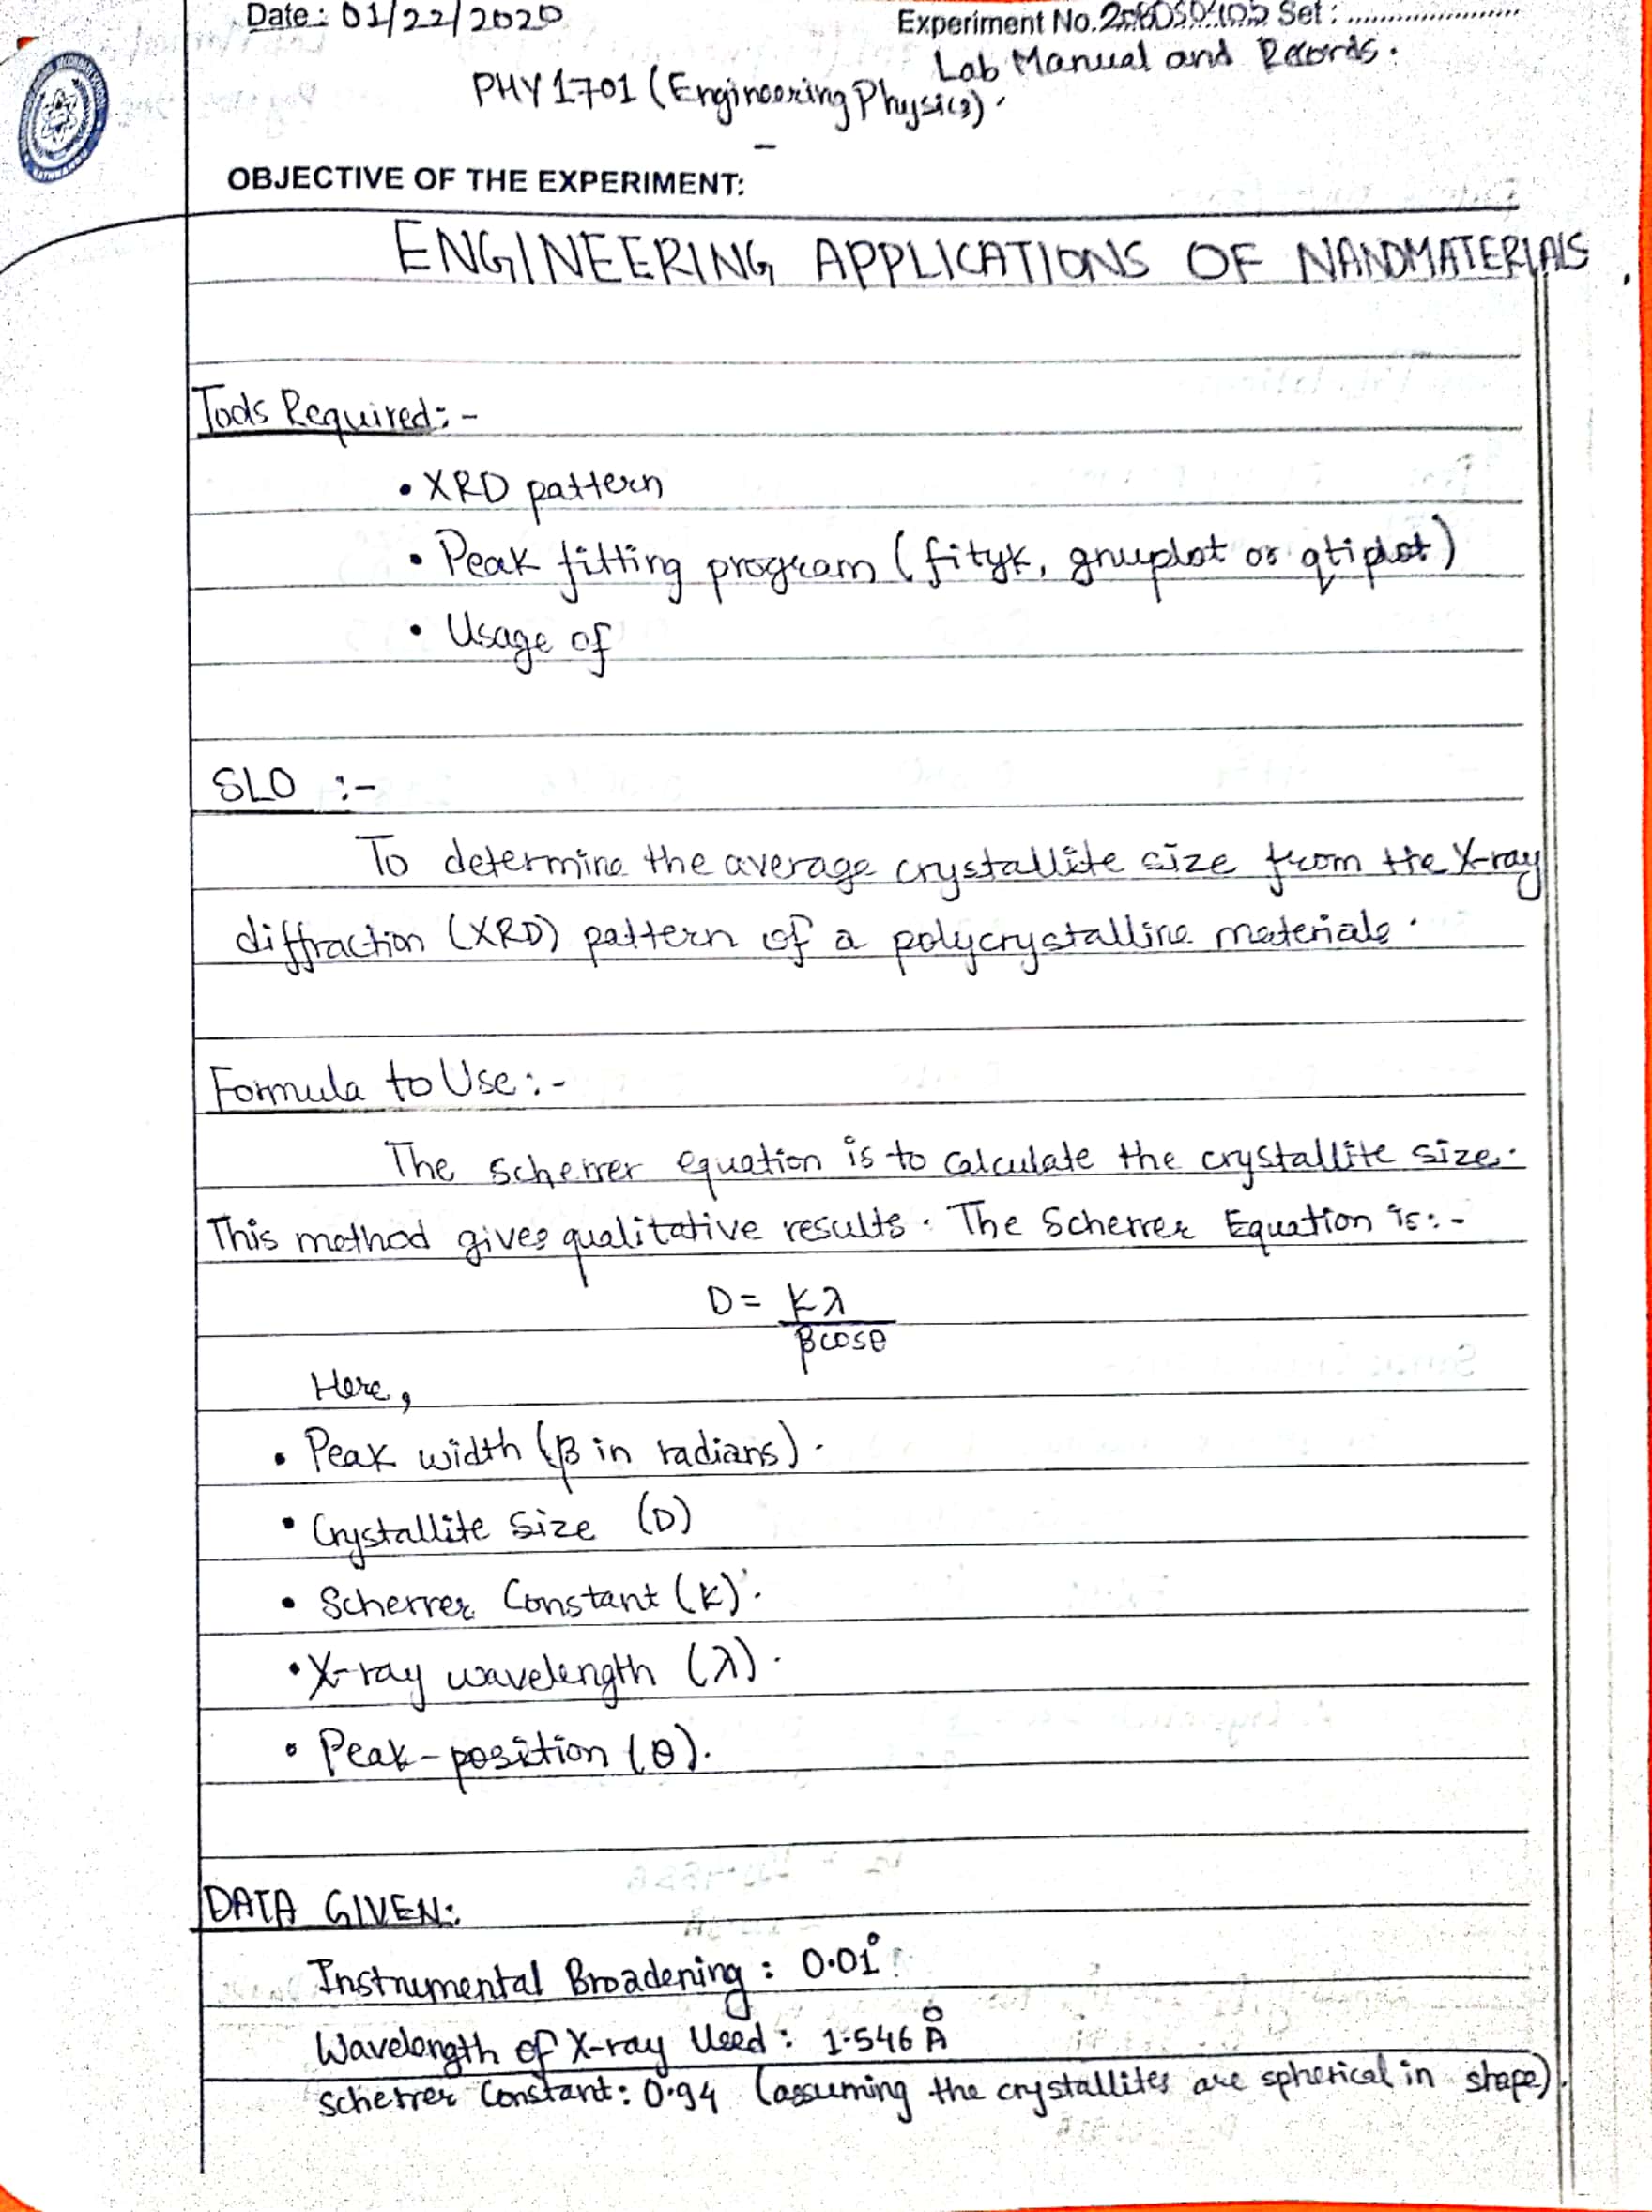 Date: 01/22/2020
Experiment No. Set: ......................
Lab Manual and Records.
PHY1701 (Engineering Physics).
OBJECTIVE OF THE EXPERIMENT:
ENGINEERING APPLICATIONS OF NANOMATERIALS.
Tools Required:-
• XRD pattern
• Peak fitting program (fityk, gnuplot or qtiplot)
• Usage of
SLO :-
To determine the average crystallite size from the X-ray
diffraction (XRD) pattern of a polycrystalline materials.
Formula to Use:-
The scherrer equation is to calculate the crystallite size.
This method gives qualitative results. The Scherrer Equation is:-
D = Kλ
βcosθ
Here,
• Peak width (β in radians).
• Crystallite Size (D)
• Scherrer Constant (K).
• X-ray wavelength (λ).
• Peak-position (θ).
DATA GIVEN:
Instrumental Broadening: 0.01°
Wavelength of X-ray Used: 1.546 Å
Scherrer Constant: 0.94 (assuming the crystallites are spherical in shape).